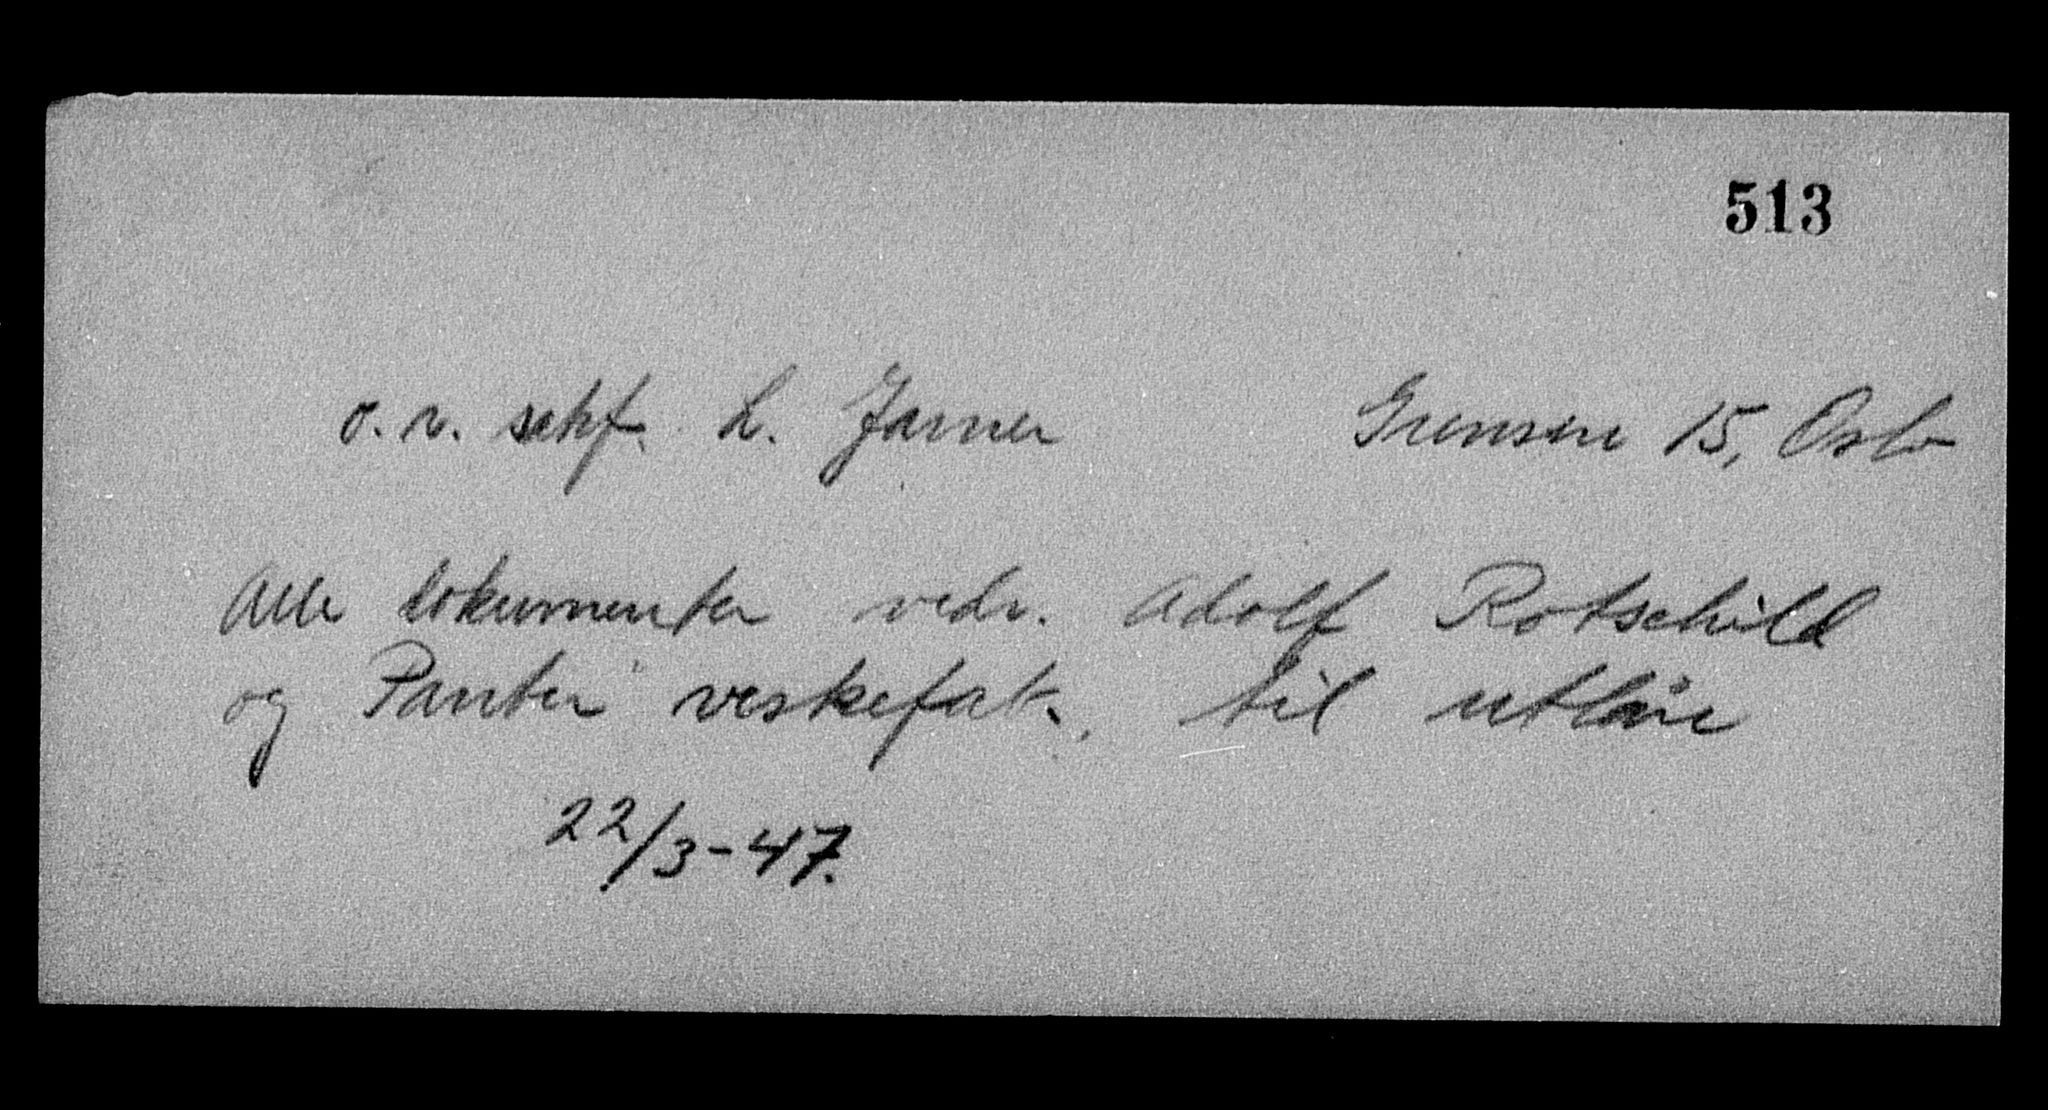 513
o. r. sakf. L. Jarner Grensen 15, Oslo
Alle dokumenter vedr. Adolf Rotschild
og Panter veskefab. til utlåne
22/3-47.